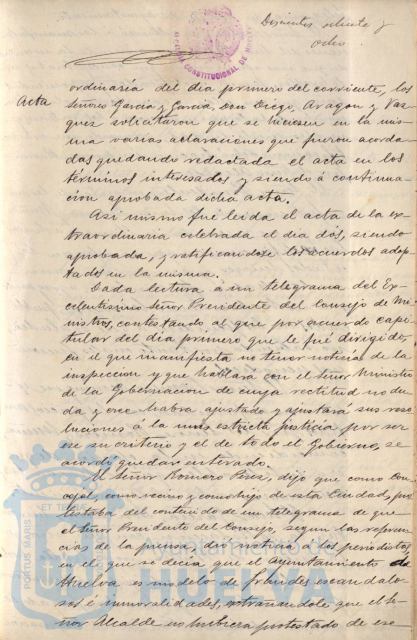 Doscientos setenta y
ocho.
ALCALDIA CONSTITUCIONAL DE HUELVA
Acta
ordinaria del dia primero del corriente, los
señores Garcia y Garcia, Don Diego, Aragon y Vaz-
quez solicitaron que se hiciesen en la mis-
ma varias aclaraciones que fueron acorda-
das quedando redactada el acta en los
términos interesados y siendo á continua-
ción aprobada dicha acta.
Asi mismo fué leida el acta de la ex-
traordinaria celebrada el dia dós, siendo
aprobada, y ratificandose los acuerdos adop-
tados en la misma.
Dada lectura á un telegrama del Ex-
celentisimo Señor Presidente del Consejo de Mi-
nistros, contestando al que por acuerdo capi-
tular del dia primero que le fué dirigido,
en el que manifiesta no tener noticia de la
inspeccion y que hablará con el Señor Ministro
de la Gobernacion de cuya rectitud no du-
da y cree habrá ajustado y ajustará sus reso-
luciones á la mas estricta justicia por ser
ese su criterio y el de todo el Gobierno, se
acordó quedar enterado.
El Señor Romero Perez, dijo que como Con-
cejal, como vecino y como hijo de esta Ciudad, pro-
testaba del contenido de un telegrama de que
el Señor Presidente del Consejo, segun las referen-
cias de la prensa dió noticia á los periodistas
en el que se decia que el Ayuntamiento de
Huelva es modelo de fraudes escandalo-
sos é inmoralidades, extrañandole que el Se-
ñor Alcalde no hubiera protestado de ese
PORTUS MARIS ET
Ayuntamiento de
HUELVA